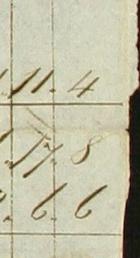 11. 4
17. 8
. 6. 6